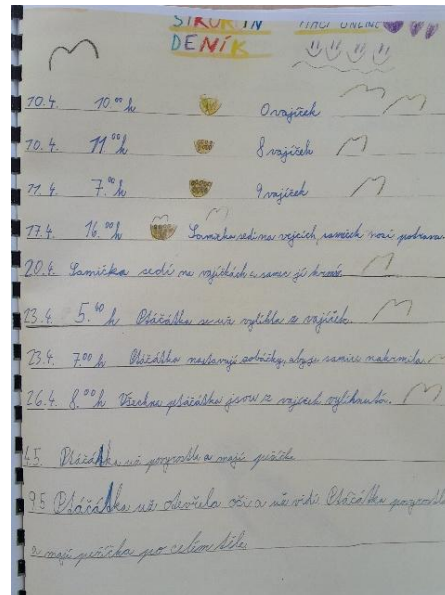 DENÍK
10.4. 10.00 h 0 vajíček
10.4. 11.00 h 8 vajíček
11.4. 7.00 h 9 vajíček
17.4. 16.00 h Samička sedí na vejcích, sameček nosí potravu
20.4. Samička sedí na vajíčkách a samec jí krmí.
23.4. 5.40 h Ptáčátka se už vylíhla z vajíček.
23.4. 7.00 h Ptáčátka nastavují zobáčky, aby je samice nakrmila.
26.4. 8.00 h Všechna ptáčátka jsou z vajíček vylíhnutá.
4.5. Ptáčátka už povyrostla a mají peříčka
9.5. Ptáčátka už otevřela oči a už vidí Ptáčátka povyrostla
a mají peříčka po celém těle.